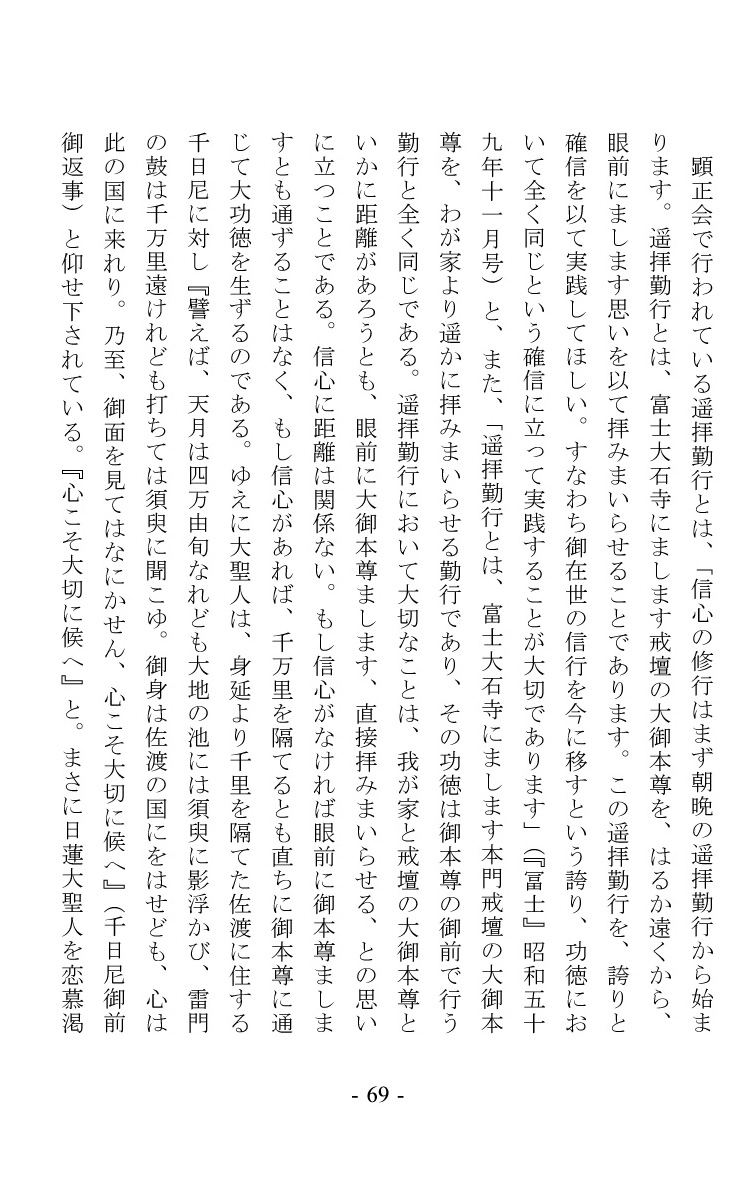 顕正会で行われている遥拝勤行とは、「信心の修行はまず朝晩の遥拝勤行から始ま
ります。遥拝勤行とは、富士大石寺にまします戒壇の大御本尊を、はるか遠くから、
眼前にまします思いを以て拝みまいらせることであります。この遥拝勤行を、誇りと
確信を以て実践してほしい。すなわち御在世の信行を今に移すという誇り、功徳にお
いて全く同じという確信に立って実践することが大切であります」（『冨士』昭和五十
九年十一月号）と、また、「遥拝勤行とは、富士大石寺にまします本門戒壇の大御本
尊を、わが家より遥かに拝みまいらせる勤行であり、その功徳は御本尊の御前で行う
勤行と全く同じである。遥拝勤行において大切なことは、我が家と戒壇の大御本尊と
いかに距離があろうとも、眼前に大御本尊まします、直接拝みまいらせる、との思い
に立つことである。信心に距離は関係ない。もし信心がなければ眼前に御本尊ましま
すとも通ずることはなく、もし信心があれば、千万里を隔てるとも直ちに御本尊に通
じて大功徳を生ずるのである。ゆえに大聖人は、身延より千里を隔てた佐渡に住する
千日尼に対し『譬えば、天月は四万由旬なれども大地の池には須臾に影浮かび、雷門
の鼓は千万里遠けれども打ちては須臾に聞こゆ。御身は佐渡の国にをはせども、心は
此の国に来れり。乃至、御面を見てはなにかせん、心こそ大切に候へ』（千日尼御前
御返事）と仰せ下されている。『心こそ大切に候へ』と。まさに日蓮大聖人を恋慕渇
- 69 -